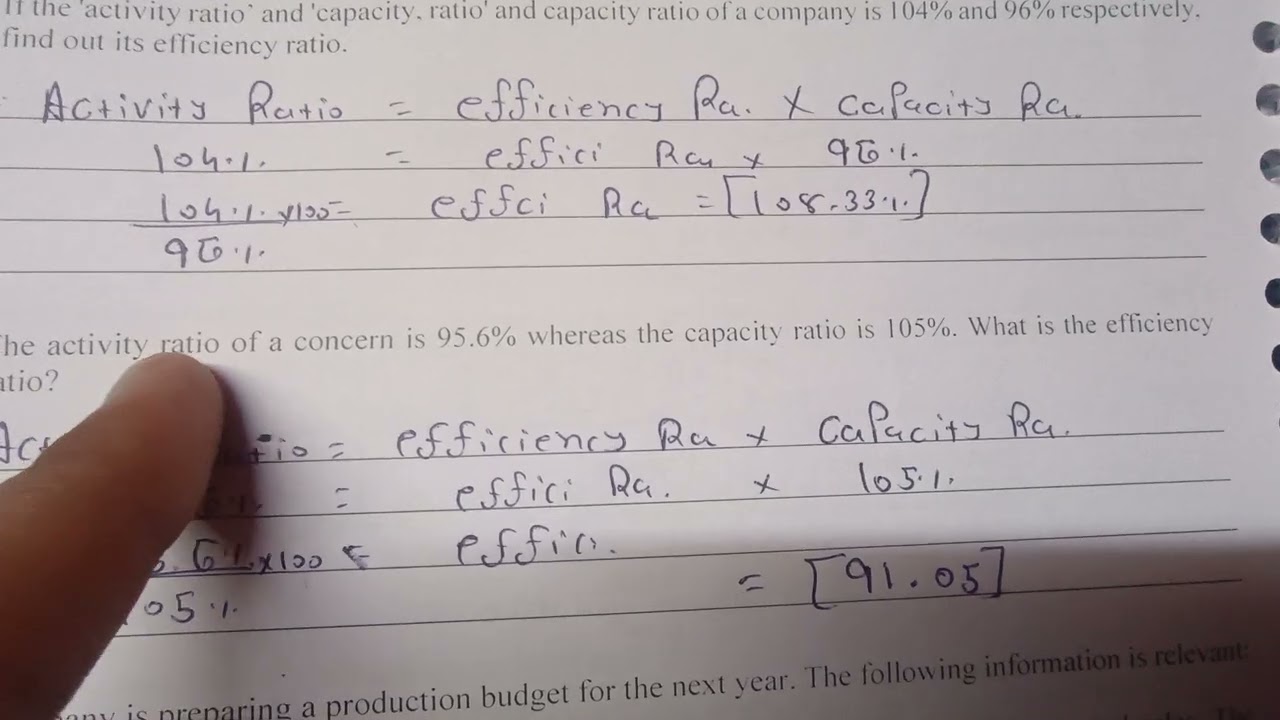 If the 'activity ratio' and 'capacity. ratio' and capacity ratio of a company is 104% and 96% respectively.
find out its efficiency ratio.
Activity Ratio = efficiency Ra. X capacity Ra.
104.1. = effici Ra x 96.1.
104.1. x100= effci Ra = [108.33.1.]
96.1.
he activity ratio of a concern is 95.6% whereas the capacity ratio is 105%. What is the efficiency
atio?
tio = efficiency Ra x capacity Ra.
= effici Ra. x 105.1.
6.1. x100 = effici.
= [91.05]
05.1.
any is preparing a production budget for the next year. The following information is relevant: